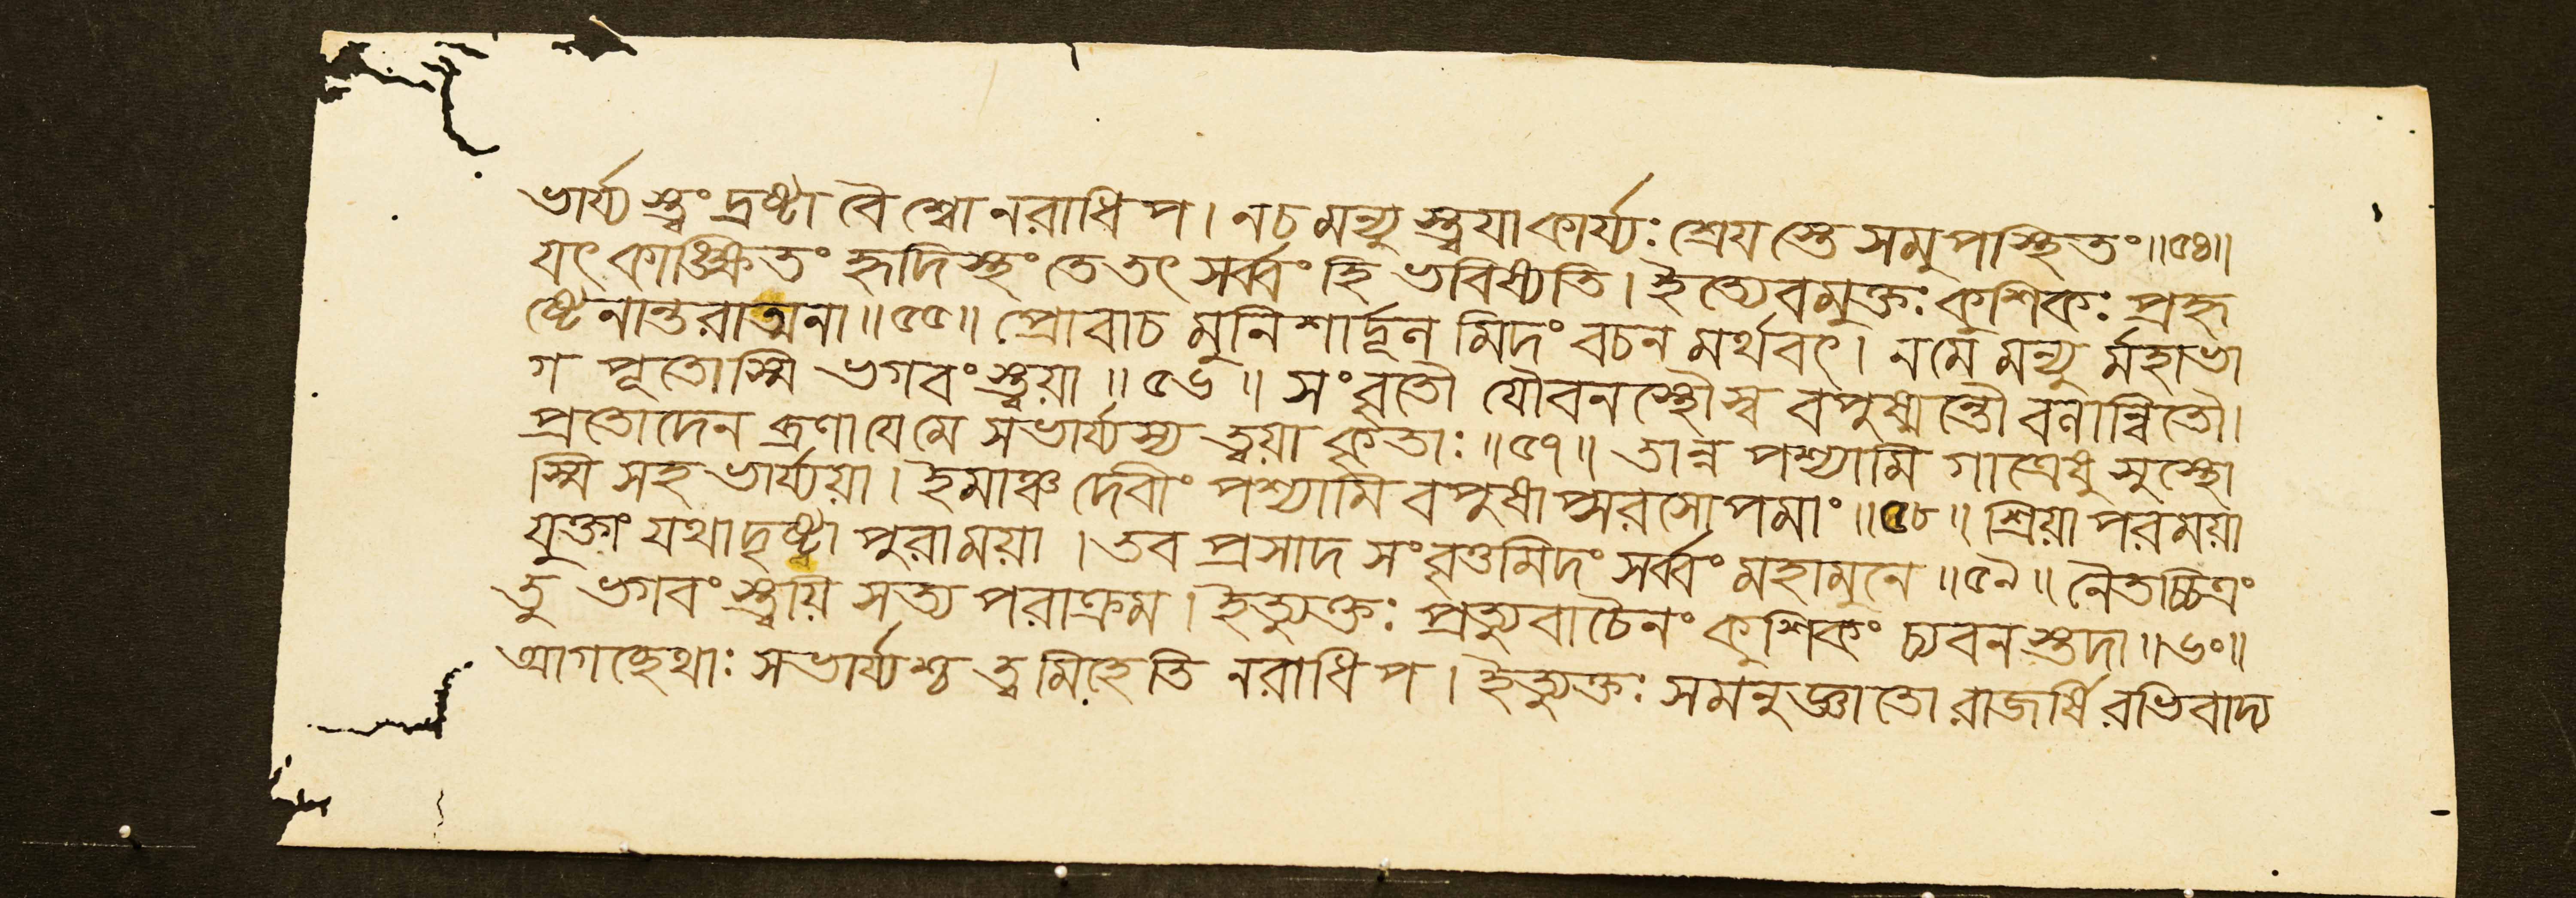 ভার্য্যস্ত্বং দ্রষ্টা বৈ শ্বো নরাধিপ। নচ মন্যুস্ত্বয়া কার্য্যঃ শ্রেয়স্তে সমুপস্থিতং॥৫৪॥
যৎ কাঙ্ক্ষিতং হৃদিস্থং তে তৎ সর্ব্বং হি ভবিষ্যতি। ইত্যেবমুক্তঃ কুশিকঃ প্রহৃ
ষ্টেনান্তরাত্মনা॥৫৫॥ প্রোবাচ মুনিশার্দ্দূল মিদং বচন মর্থবৎ। নমে মন্যু র্মহাভা
গ পূতোস্মি ভগবংস্ত্বয়া॥৫৬॥ সংবৃতৌ যৌবনস্থৌ স্ব বপুষ্মন্তৌ বলান্বিতৌ।
প্রতোদেন ব্রণা যে মে সভার্য্যস্য ত্বয়া কৃতাঃ॥৫৭॥ তান্ন পশ্যামি গাত্রেষু সুস্থো
স্মি সহ ভার্য্যয়া। ইমাঞ্চ দেবীং পশ্যামি বপুষাপ্সরসোপমাং॥৫৮॥ শ্রিয়া পরময়া
যুক্তাং যথা দৃষ্ট্বা পুরা ময়া। তব প্রসাদ সংবৃত্তমিদং সর্ব্বং মহামুনে॥৫৯॥ নৈতচ্চিত্রং
তু ভগবংস্ত্বয়ি সত্য পরাক্রম। ইত্যুক্তঃ প্রত্যুবাচৈনং কুশিকং চ্যবন স্তদা॥৬০॥
আগচ্ছেথাঃ সভার্য্যশ্চ ত্বমিহেতি নরাধিপ। ইত্যুক্তঃ সমনুজ্ঞাতো রাজর্ষি রভিবাদ্য